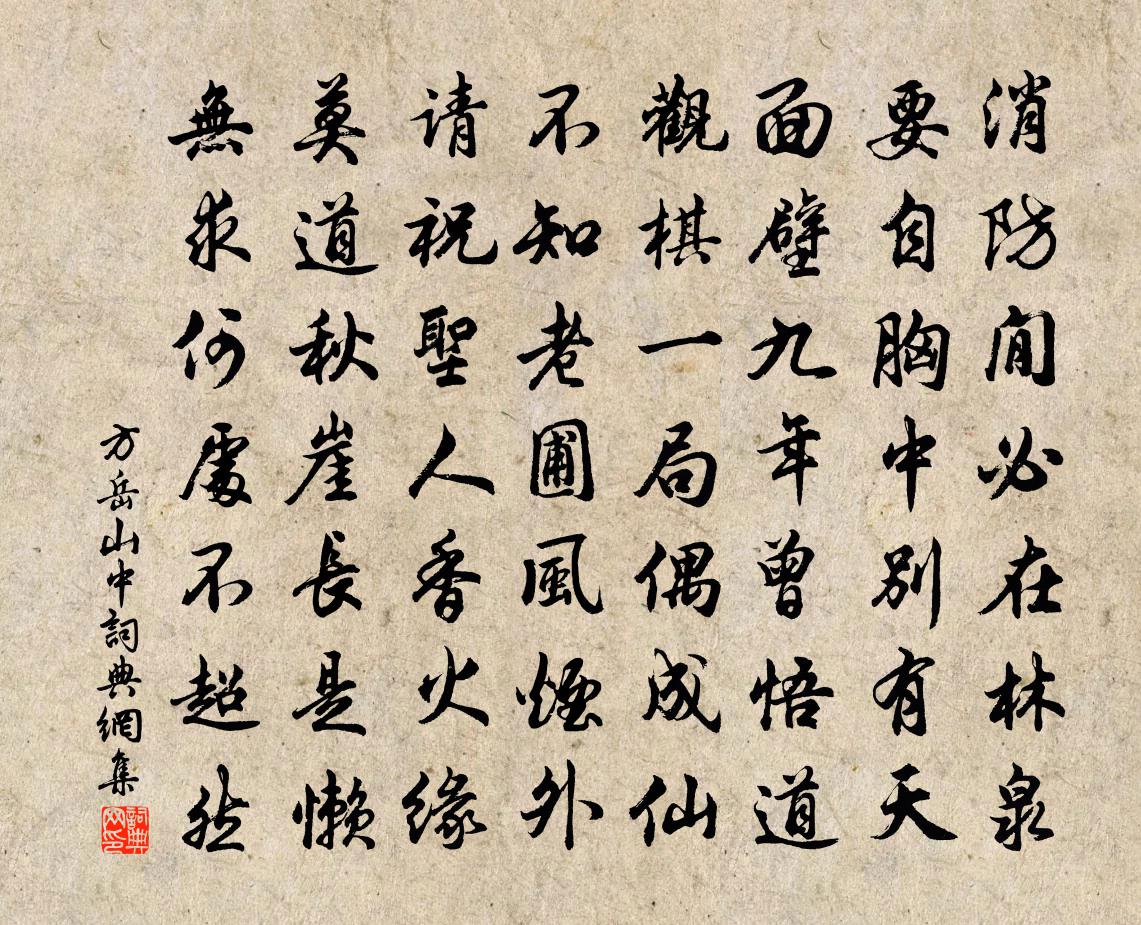 消防閒必在林泉
要自胸中別有天
面壁九年曾悟道
觀棋一局偶成仙
不知老圃風煙外
请祝聖人香火緣
莫道秋崖長是懶
無求何處不超然
方岳山中詞典網集
詞典网印